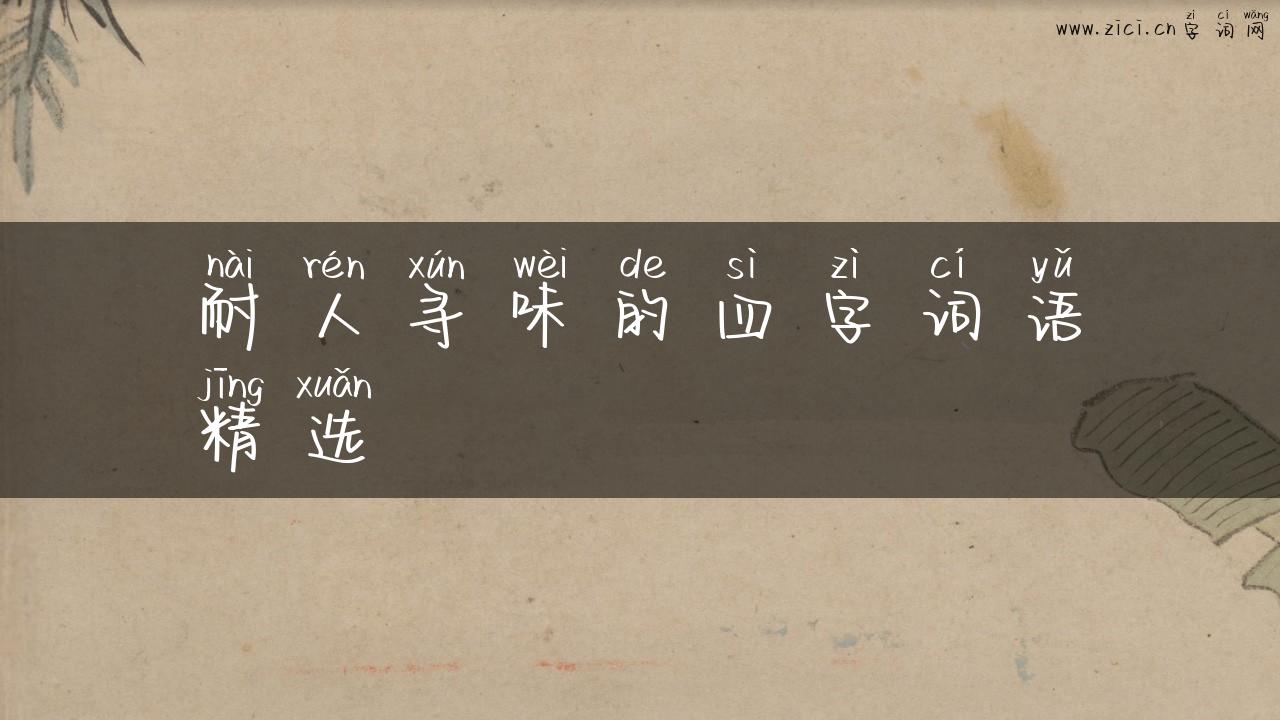 zì cí wǎng
www.zici.cn 字词网
nài rén xún wèi de sì zì cí yǔ
耐人寻味的四字词语
jīng xuǎn
精选